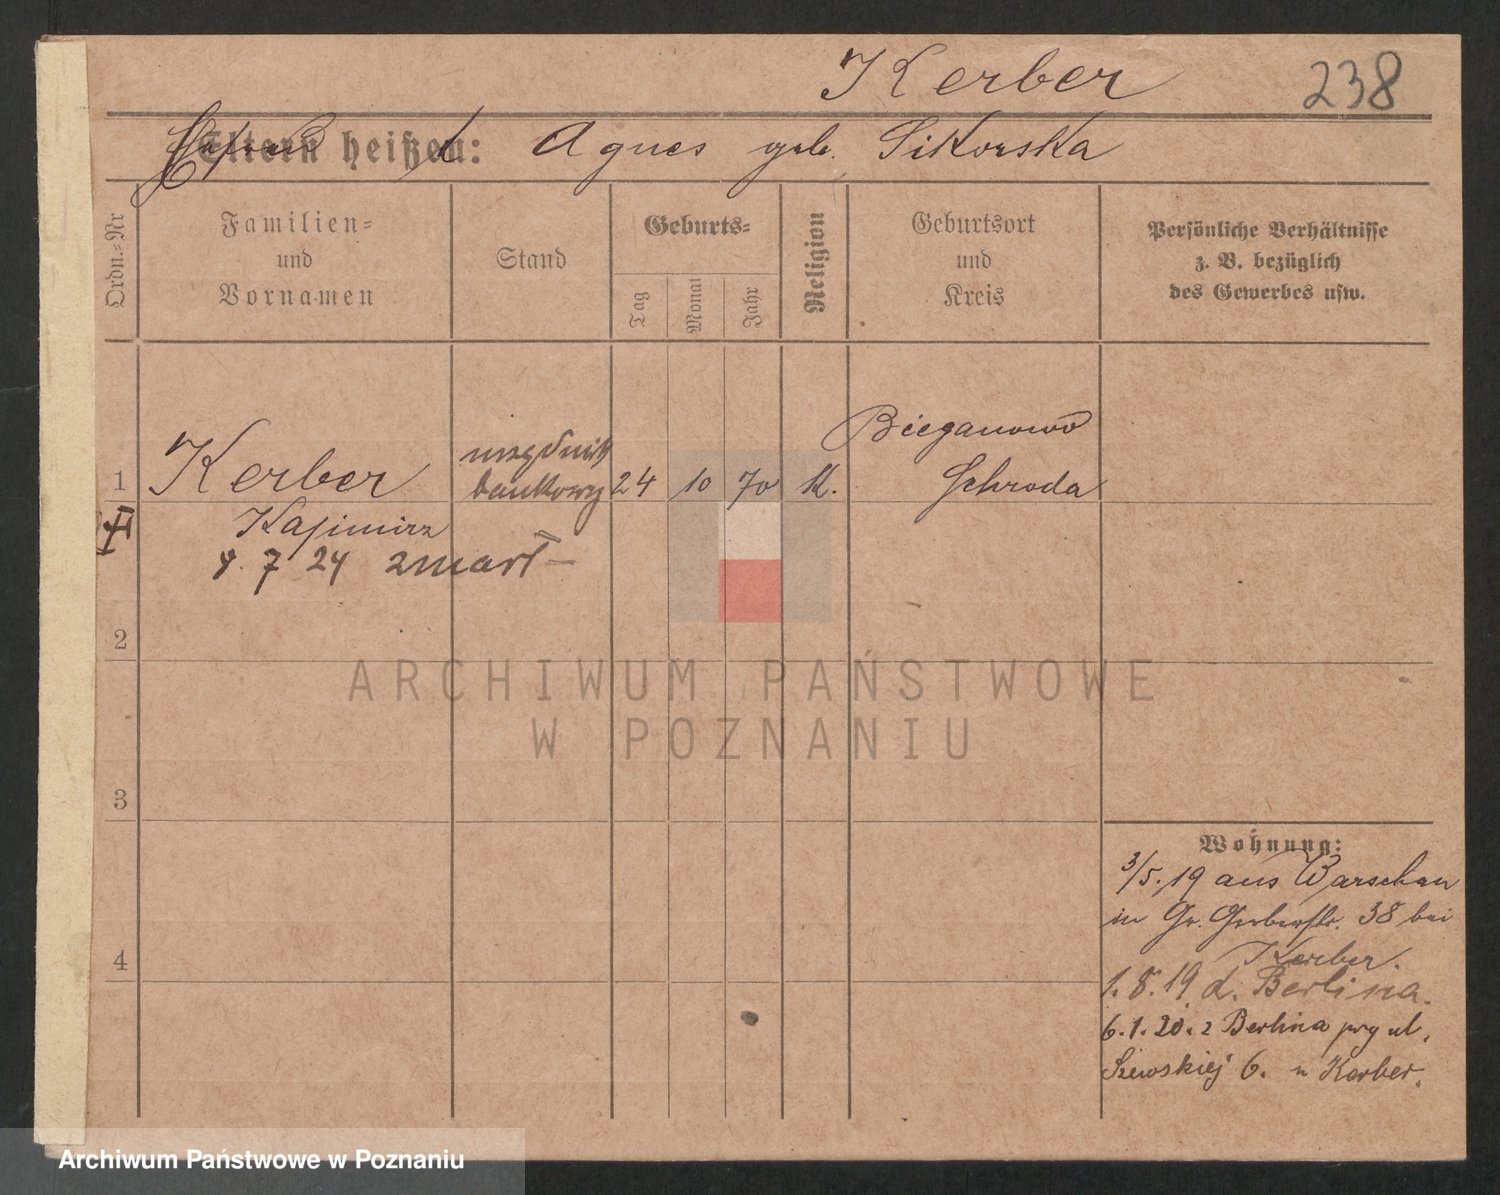 Kerber
238
Eltern heißen: Agnes geb. Sikorska
Ordn.=Nr
Familien=
und
Vornamen
Stand
Geburts=
Tag
Monat
Jahr
Religion
Geburtsort
und
Kreis
Persönliche Verhältnisse
z. B. bezüglich
des Gewerbes usw.
1
Kerber
urzędnik
bankowy
24
10
70
K.
Bieganowo
Schroda
Kasimirz
7 24 zmarł
2
3
4
Wohnung:
3/5. 19 aus Warschau
in Gr. Gerberstr. 38 bei
Kerber.
1. 8. 19 d. Berlina.
6. 1. 20. z Berlina przy ul.
Szewskiej 6. u Kerber.
ARCHIWUM PAŃSTWOWE
W POZNANIU
Archiwum Państwowe w Poznaniu